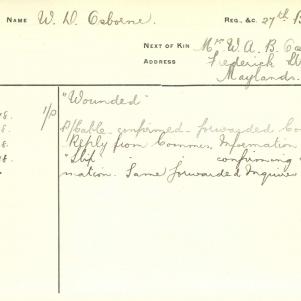 NAME W. D. Osborne. REG., &C. 27th B
NEXT OF KIN Mr W. A. B. Os
ADDRESS Frederick St
Maylands.
"Wounded"
1/p P/Cable confirmed - forwarded Co
Reply from Commes. Information
8. " Lbf " " confirming
mation. Same forwarded Inquirer